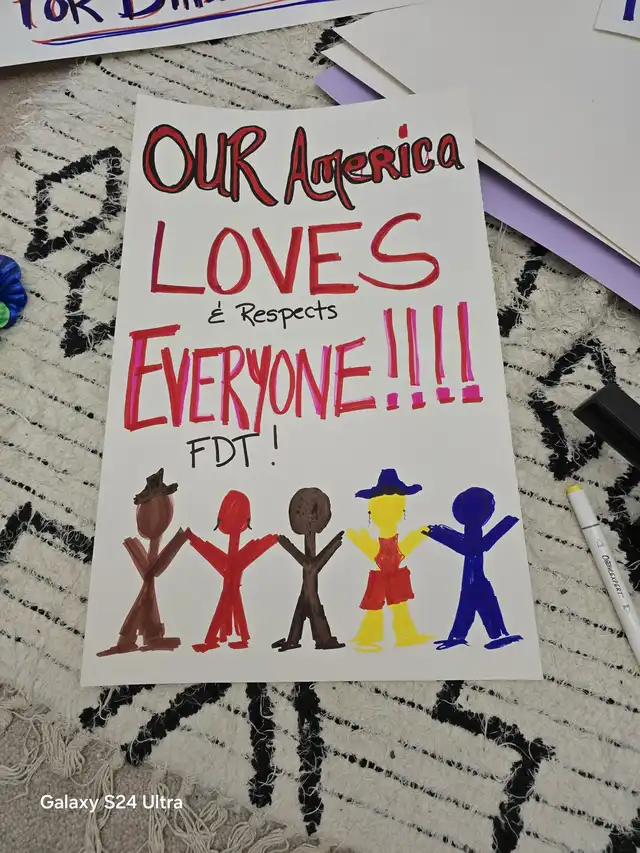 FOR
OUR America
LOVES
& Respects
EVERYONE!!!!
FDT!
Galaxy S24 Ultra